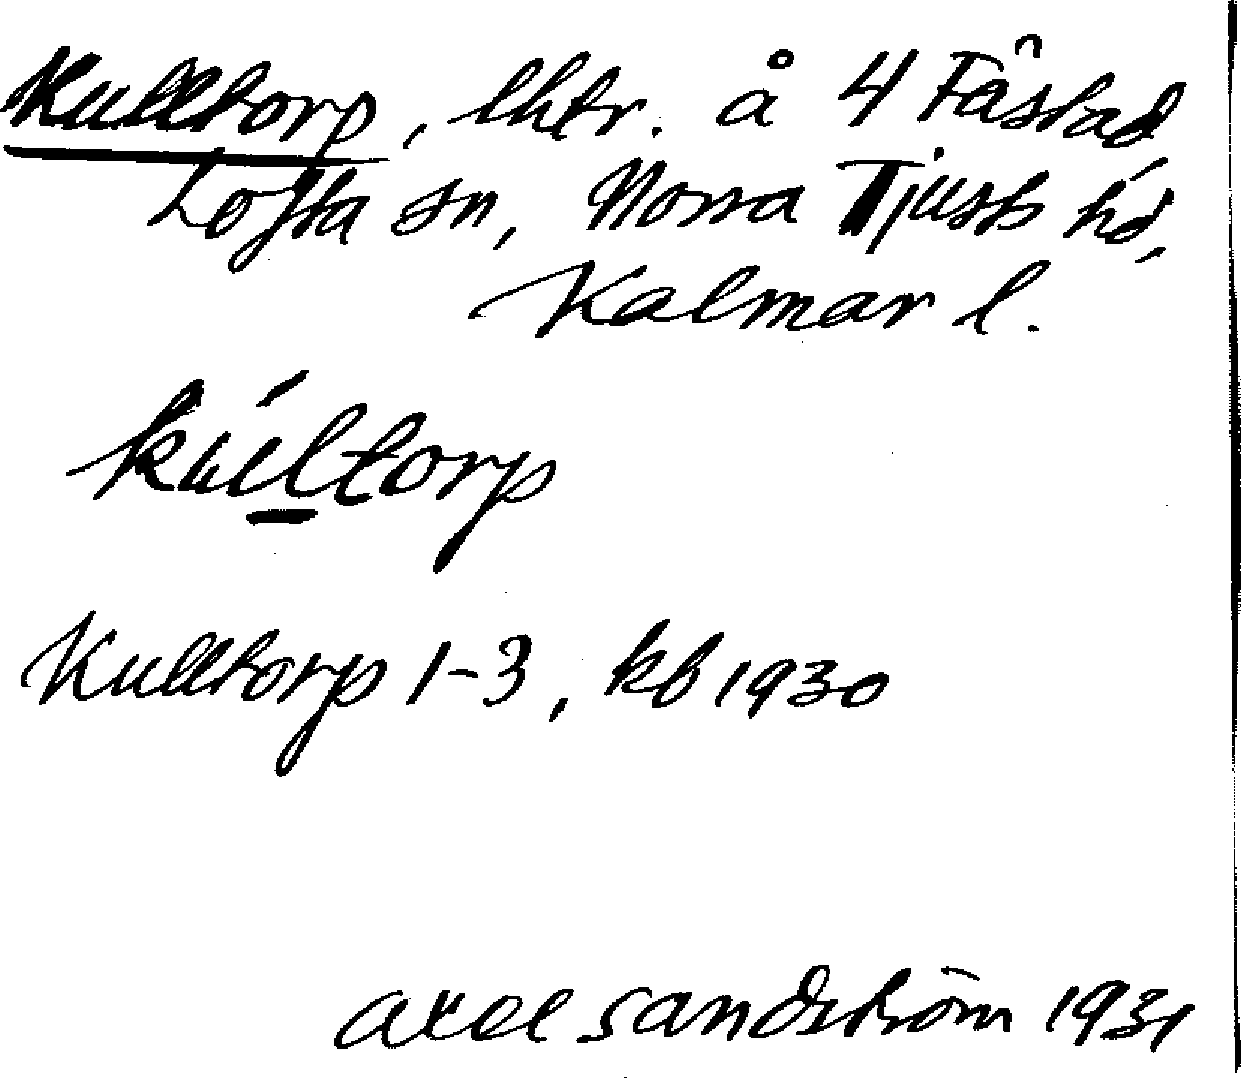 Kulltorp, lhtr. å 4 Fåstad
Lofta sn, Norra Tjusts hd,
Kalmar l.
kúltorp
Kulltorp 1-3, kb 1930
Axel Sandström 1931